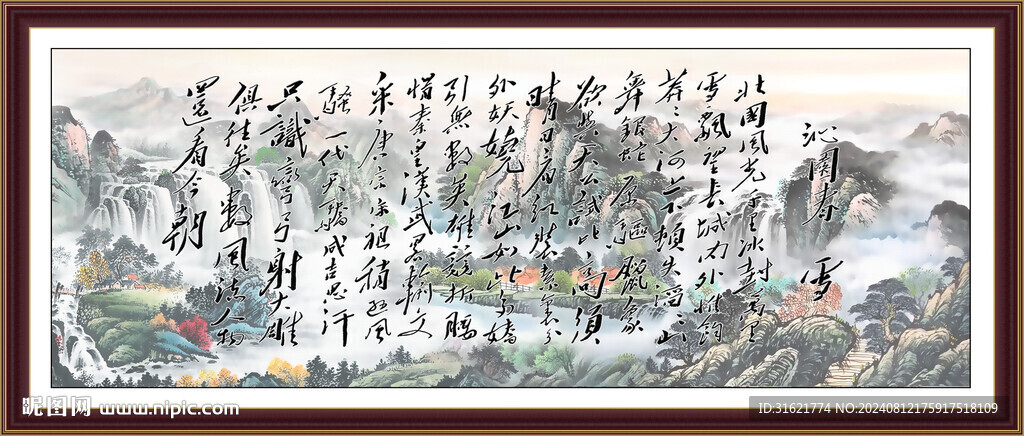 沁園春 雪
北國風光千里冰封萬里
雪飄望長城内外惟餘
莽々大河上下頓失滔々山
舞銀蛇原馳臘象
欲與天公試比高須
晴日看紅裝素裹分
外妖嬈江山如此多嬌
引無數英雄競折腰
惜秦皇漢武略輸文
采唐宗宋祖稍遜風
騷一代天驕成吉思汗
只識彎弓射大雕
俱往矣數風流人物
還看今朝
昵图网 www.nipic.com
ID:31621774 NO:20240812175917518109